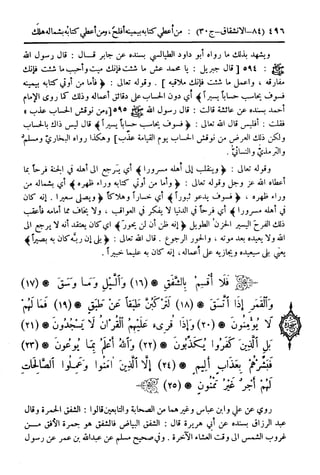 ٤٩٦ (٨٤ – الانشقاق – ج ٣٠) : من أعطي كتابه بيمينه أفلح ، ومن أعطي كتابه بشماله هلك
ويشهد بذلك ما رواه أبو داود الطيالسي بسنده عن جابر قـــال : قال رسول الله
[٥٩٤] قال جبريل : يا محمد عش ما شئت فإنك ميت وأحبب ما شئت فإنك
مفارقه ، واعمل ما شئت فإنك ملاقيه ] . وقوله تعالى : « فأما من أوتي كتابه بيمينه
فسوف يحاسب حساباً يسيراً » أي دون الحساب على دقائق أعماله وذلك كما روى الإمام
أحمد بسنده عن عائشة قالت : قال رسول الله [٥٩٥ من نوقش الحساب عذب »
فقلت : أفليس قال الله تعالى : « فسوف يحاسب حساباً يسيراً » قال ليس ذاك بالحساب
ولكن ذلك العرض من نوقش الحساب يوم القيامة عذب] وهكذا رواه البخاري ومسلم
والترمذي والنسائي .
وقوله تعالى : « وينقلب إلى أهله مسروراً » أي يرجع الى أهله في الجنة فرحاً بما
أعطاه الله عز وجل وقوله تعالى : « وأما من أوتي كتابه وراء ظهره » أي بشماله من
وراء ظهره ، « فسوف يدعو ثبوراً » أي خساراً وهلاكاً « ويصلى سعيراً . إنه كان
في أهله مسروراً » أي فرحاً في الدنيا لا يفكر في العواقب ، ولا يخاف مما أمامه فأعقب
ذلك الفرح اليسير الحزن الطويل « إنه ظن أن لن يحور » أي كان يعتقد أنه لا يرجع الى
الله ولا يعيده بعد موته ، والحور الرجوع . قال الله تعالى : « بلى إن ربه كان به بصيراً »
يعني بلى سيعيده ويجازيه على أعماله ، إنه كان به عليماً خبيراً .
فَلَا أُقْسِمُ بِالشَّفَقِ (١٦) وَالَّيْلِ وَمَا وَسَقَ (١٧)
وَالْقَمَرِ إِذَا اتَّسَقَ (١٨) لَتَرْكَبُنَّ طَبَقًا عَنْ طَبَقٍ (١٩) فَمَا لَهُمْ
لَا يُؤْمِنُونَ (٢٠) وَإِذَا قُرِئَ عَلَيْهِمُ الْقُرْآنُ لَا يَسْجُدُونَ (٢١)
بَلِ الَّذِينَ كَفَرُوا يُكَذِّبُونَ (٢٢) وَاللَّهُ أَعْلَمُ بِمَا يُوعُونَ (٢٣)
فَبَشِّرْهُمْ بِعَذَابٍ أَلِيمٍ (٢٤) إِلَّا الَّذِينَ آمَنُوا وَعَمِلُوا الصَّالِحَاتِ
لَهُمْ أَجْرٌ غَيْرُ مَمْنُونٍ (٢٥)
روي عن علي وابن عباس وغيرهما من الصحابة والتابعين قالوا : الشفق الحمرة وقال
عبد الرزاق بسنده عن أبي هريرة قال : الشفق البياض فالشفق هو حمرة الأفق مــن
غروب الشمس الى وقت العشاء الآخرة . وفي صحيح مسلم عن عبدالله بن عمر عن رسول